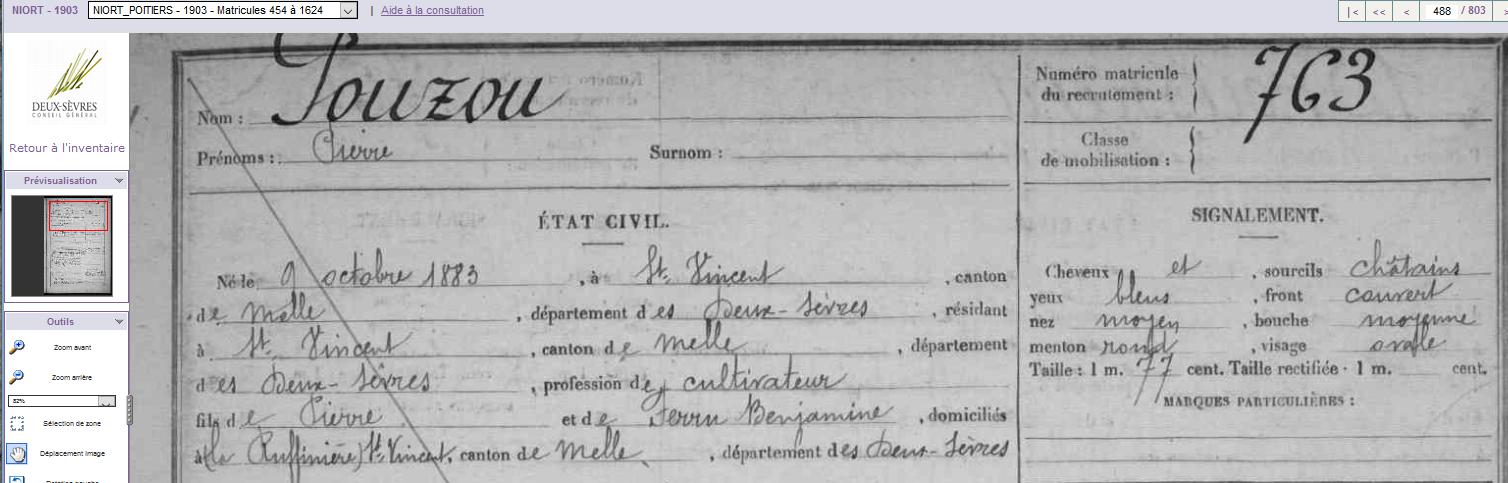 NIORT - 1903
NIORT_POITIERS - 1903 - Matricules 454 à 1624
| Aide à la consultation
|< << < 488 / 803 >
DEUX-SÈVRES
CONSEIL GÉNÉRAL
Retour à l'inventaire
Prévisualisation
Outils
Zoom avant
Zoom arrière
82%
Sélection de zone
Déplacement image
Nom : Pouzou
Prénoms : Pierre Surnom :
Numéro matricule
du recrutement : 763
Classe
de mobilisation :
ÉTAT CIVIL.
Né le 9 octobre 1883, à St. Vincent, canton
de Melle, département des Deux-Sèvres, résidant
à St. Vincent, canton de Melle, département
des Deux-Sèvres, profession de cultivateur
fils de Pierre et de Ferru Benjamine, domiciliés
à (la Ruffinière) St. Vincent, canton de Melle, département des Deux-Sèvres
SIGNALEMENT.
Cheveux et, sourcils châtains
yeux bleus, front couvert
nez moyen, bouche moyenne
menton rond, visage ovale
Taille : 1 m. 77 cent. Taille rectifiée . 1 m. cent.
MARQUES PARTICULIÈRES :